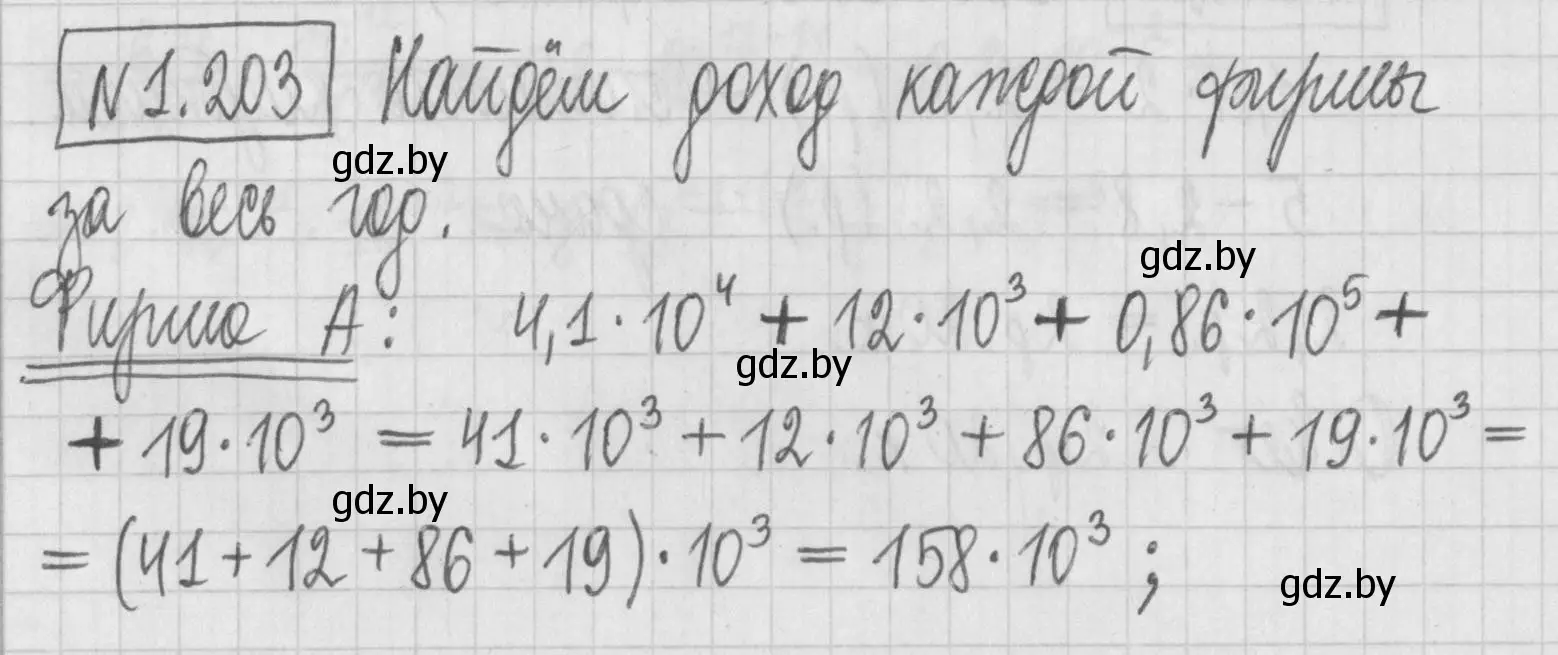 N 1.203 Найдём доход каждой фирмы
gdz.by
за весь год.
gdz.by
Фирма А: 4,1·10⁴ + 12·10³ + 0,86·10⁵ +
gdz.by
+ 19·10³ = 41·10³ + 12·10³ + 86·10³ + 19·10³ =
gdz.by
= (41 + 12 + 86 + 19)·10³ = 158·10³ ;
gdz.by